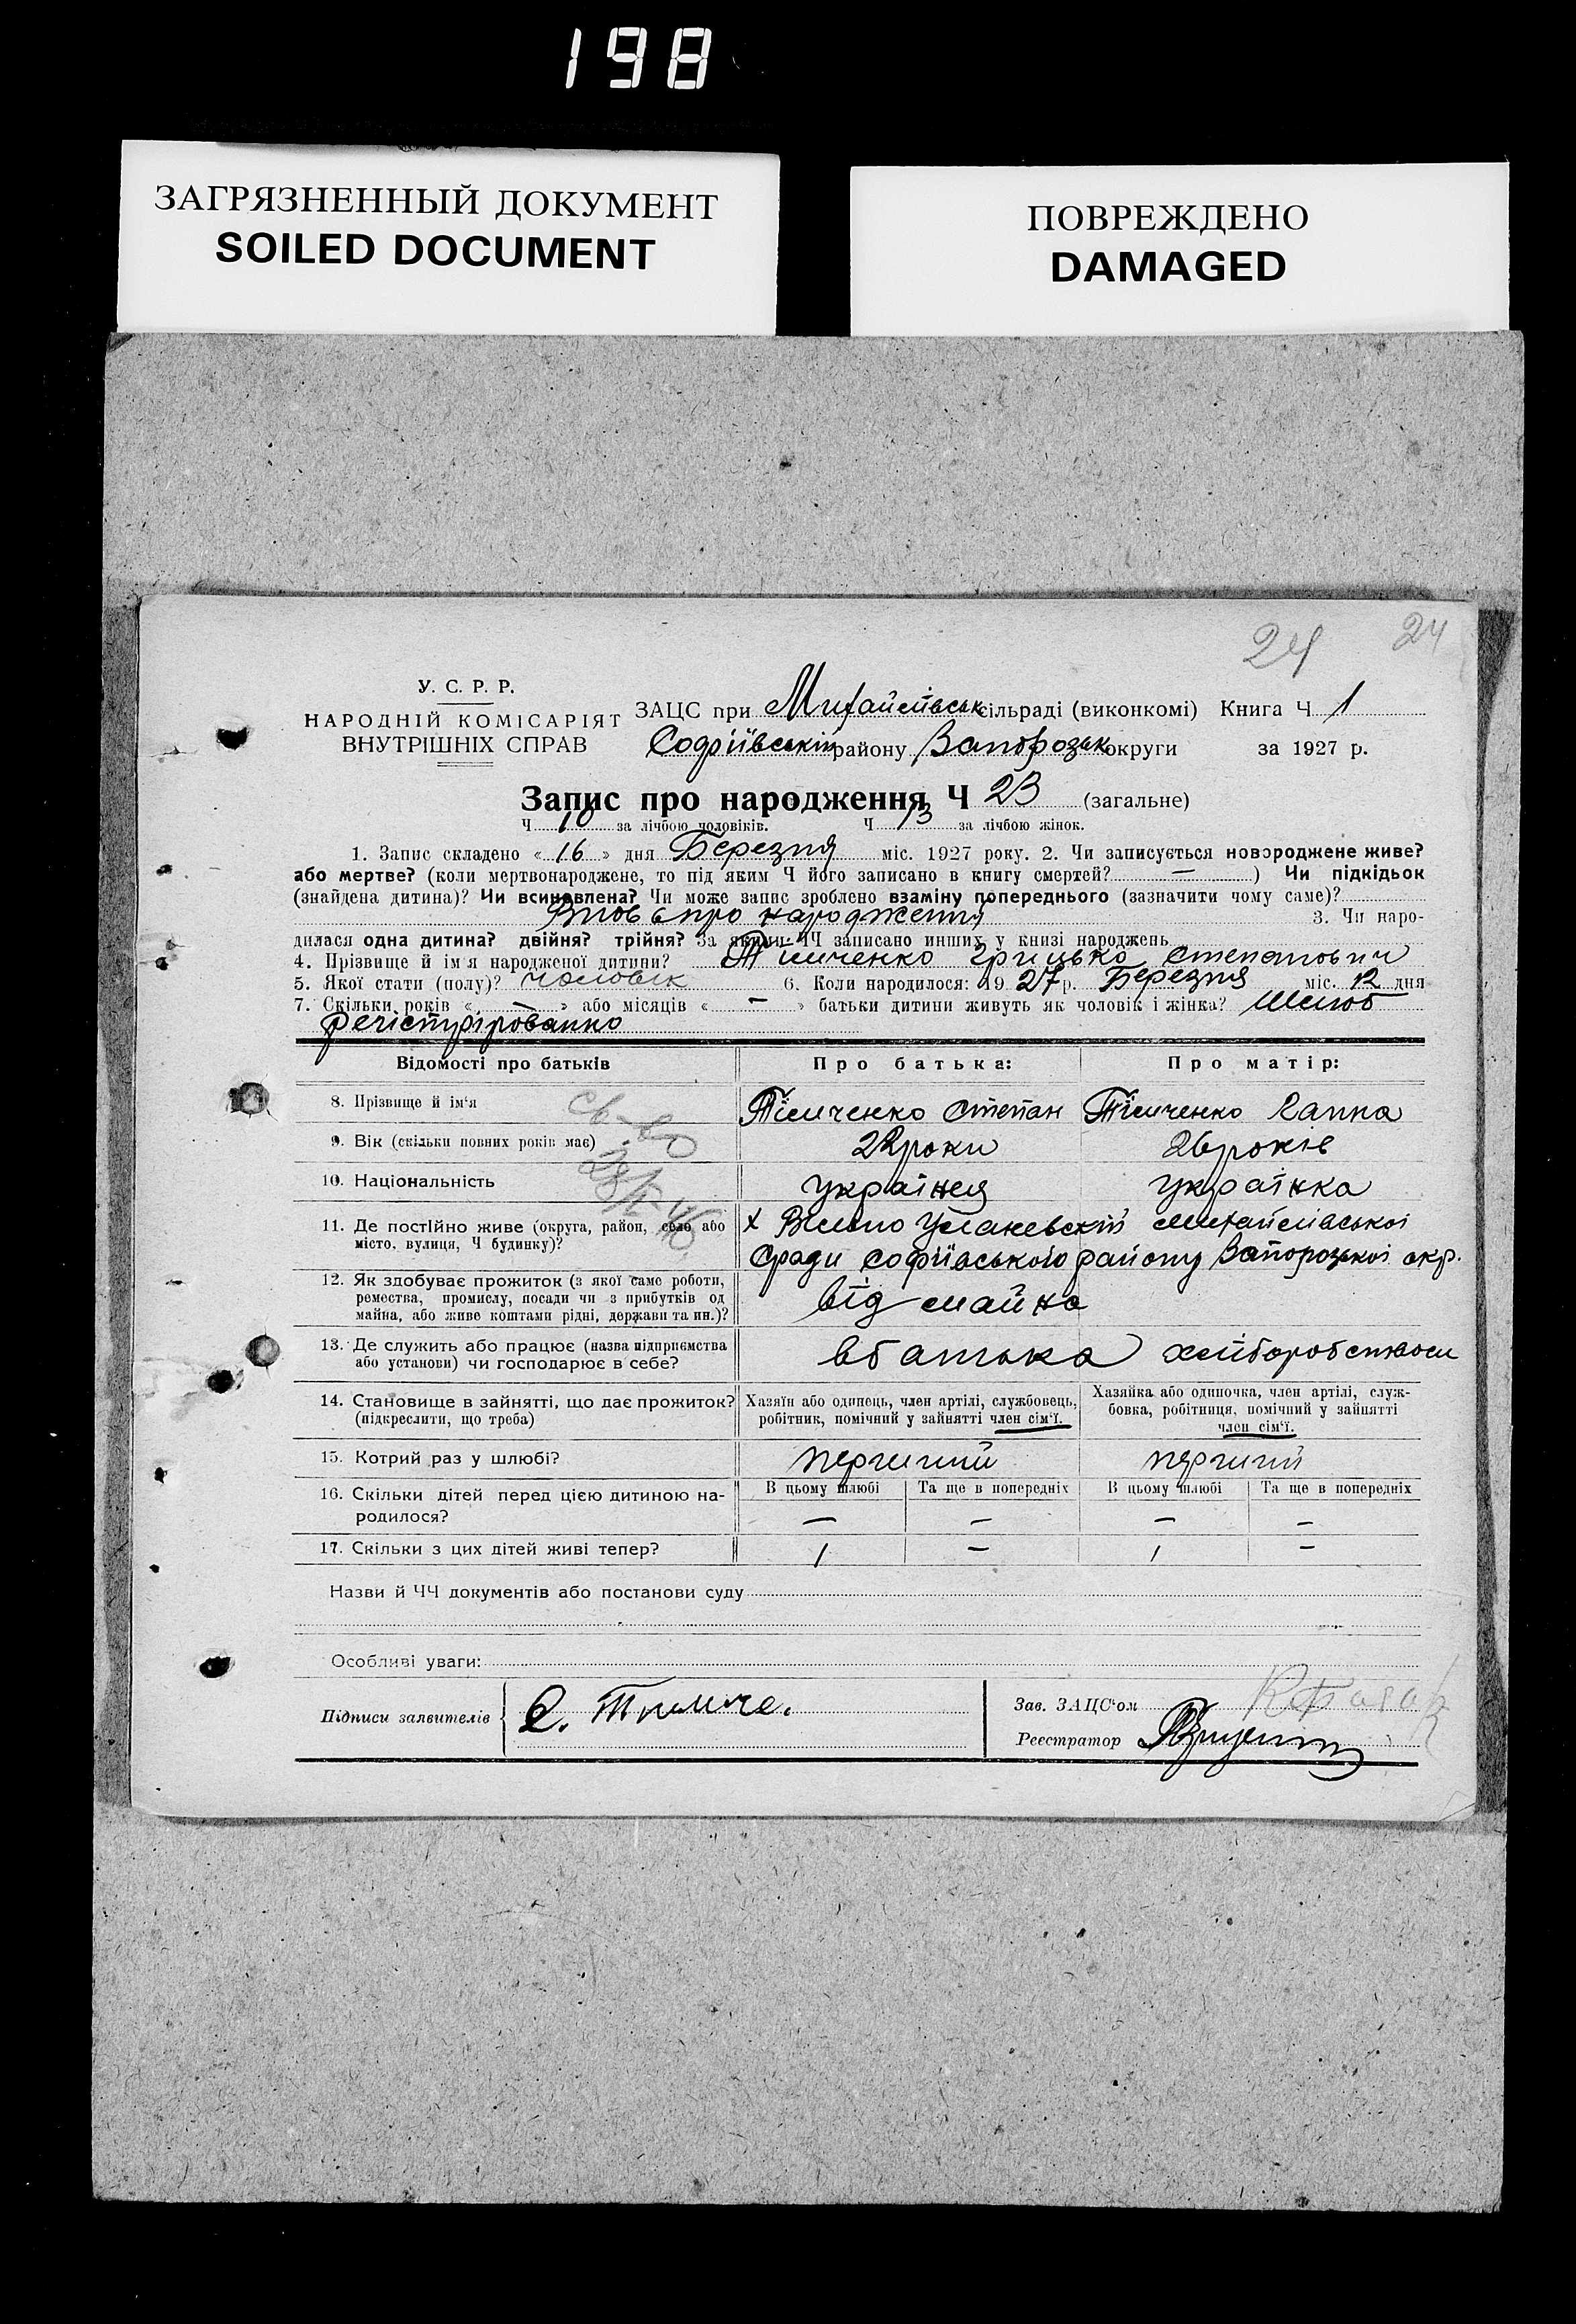 198
ЗАГРЯЗНЕННЫЙ ДОКУМЕНТ
SOILED DOCUMENT
ПОВРЕЖДЕНО
DAMAGED
24 24
У. С. Р. Р.
НАРОДНІЙ КОМІСАРІЯТ
ВНУТРІШНІХ СПРАВ
ЗАЦС при Михайлівськ сільраді (виконкомі) Книга Ч 1
Софіївській району Запорозьк округи за 1927 р.
Запис про народження Ч 23 (загальне)
Ч 10 за лічбою чоловіків. Ч 13 за лічбою жінок.
1. Запис складено « 16 » дня Березня міс. 1927 року. 2. Чи записується новороджене живе?
або мертве? (коли мертвонароджене, то під яким Ч його записано в книгу смертей? — ) Чи підкідьок
(знайдена дитина)? Чи всиновлена? Чи може запис зроблено взаміну попереднього (зазначити чому саме)?
про народження 3. Чи наро-
дилася одна дитина? двійня? трійня? За якими ЧЧ записано инших у книзі народжень
4. Прізвище й ім'я народженої дитини? Тімченко Грицько Степанович
5. Якої стати (полу)? чоловік 6. Коли народилося: 19 27 р. Березня міс. 12 дня
7. Скільки років « — » або місяців « — » батьки дитини живуть як чоловік і жінка? Шлюб
речістріровано
Відомості про батьків Про батька: Про матір:
8. Прізвище й ім'я Тімченко Степан Тімченко Ганна
9. Вік (скільки повних років має) 22 роки 26 років
10. Національність Українец Українка
св-во
11. Де постійно живе (округа, район, село або
місто, вулиця, Ч будинку)?
х Михайлівської
Сради Софіївського району Запорозької окр.
12. Як здобуває прожиток (з якої саме роботи,
ремества, промислу, посади чи з прибутків од
майна, або живе коштами рідні, держави та ин.)?
від майна
13. Де служить або працює (назва підприємства
або установи) чи господарює в себе?
в батька хліборобством
14. Становище в зайнятті, що дає прожиток?
(підкреслити, що треба)
Хазяїн або одинець, член артілі, службовець,
робітник, помічний у зайнятті член сім'ї.
Хазяйка або одиночка, член артілі, служ-
бовка, робітниця, помічний у зайнятті
член сім'ї.
15. Котрий раз у шлюбі? перший перший
16. Скільки дітей перед цією дитиною на-
родилося?
В цьому шлюбі Та ще в попередніх В цьому шлюбі Та ще в попередніх
— — — —
17. Скільки з цих дітей живі тепер? 1 — 1 —
Назви й ЧЧ документів або постанови суду
Особливі уваги:
Підписи заявителів С. Тимче.
Зав. ЗАЦС'ом
Реєстратор